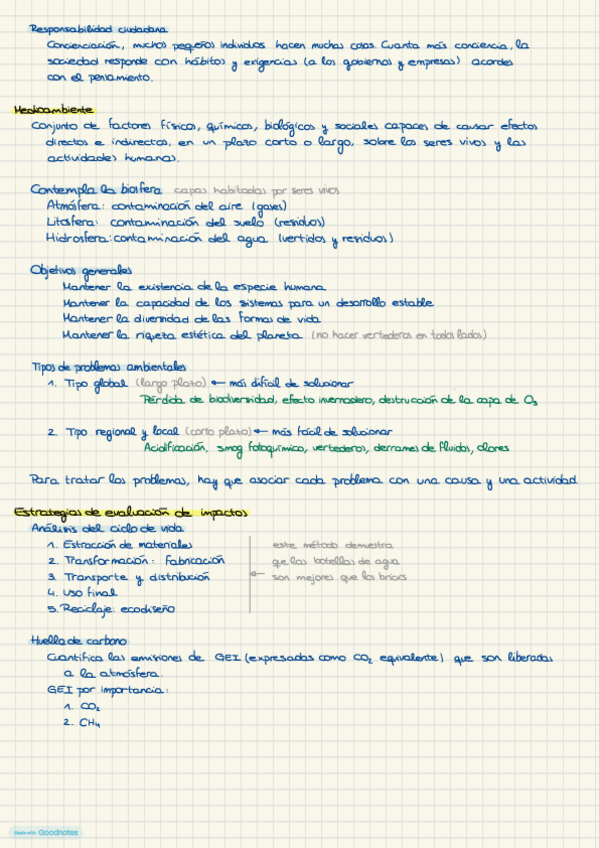 Responsabilidad ciudadana
Concienciación, muchos pequeños individuos hacen muchas cosas. Cuanta más conciencia, la
sociedad responde con hábitos y exigencias (a los gobiernos y empresas) acordes
con el pensamiento.
Medioambiente
Conjunto de factores físicos, químicos, biológicos y sociales capaces de causar efectos
directos e indirectos, en un plazo corto o largo, sobre los seres vivos y las
actividades humanas.
Contempla la biosfera capas habitadas por seres vivos
Atmósfera: contaminación del aire (gases)
Litosfera: contaminación del suelo (residuos)
Hidrosfera: contaminación del agua (vertidos y residuos)
Objetivos generales
Mantener la existencia de la especie humana
Mantener la capacidad de los sistemas para un desarrollo estable
Mantener la diversidad de las formas de vida
Mantener la riqueza estética del planeta (no hacer vertederos en todos lados)
Tipos de problemas ambientales
1. Tipo global (largo plazo) ← más difícil de solucionar
Pérdida de biodiversidad, efecto invernadero, destrucción de la capa de O₃
2. Tipo regional y local (corto plazo) ← más fácil de solucionar
Acidificación, smog fotoquímico, vertederos, derrames de fluidos, olores
Para tratar los problemas, hay que asociar cada problema con una causa y una actividad.
Estrategias de evaluación de impactos
Análisis del ciclo de vida
1. Estracción de materiales
2. Transformación: Fabricación
3. Transporte y distribución
4. Uso final
5. Reciclaje: ecodiseño
este método demuestra
que las botellas de agua
← son mejores que los bricks
Huella de carbono
Cuantifica las emisiones de GEI (expresadas como CO₂ equivalente) que son liberadas
a la atmósfera.
GEI por importancia:
1. CO₂
2. CH₄
Made with Goodnotes